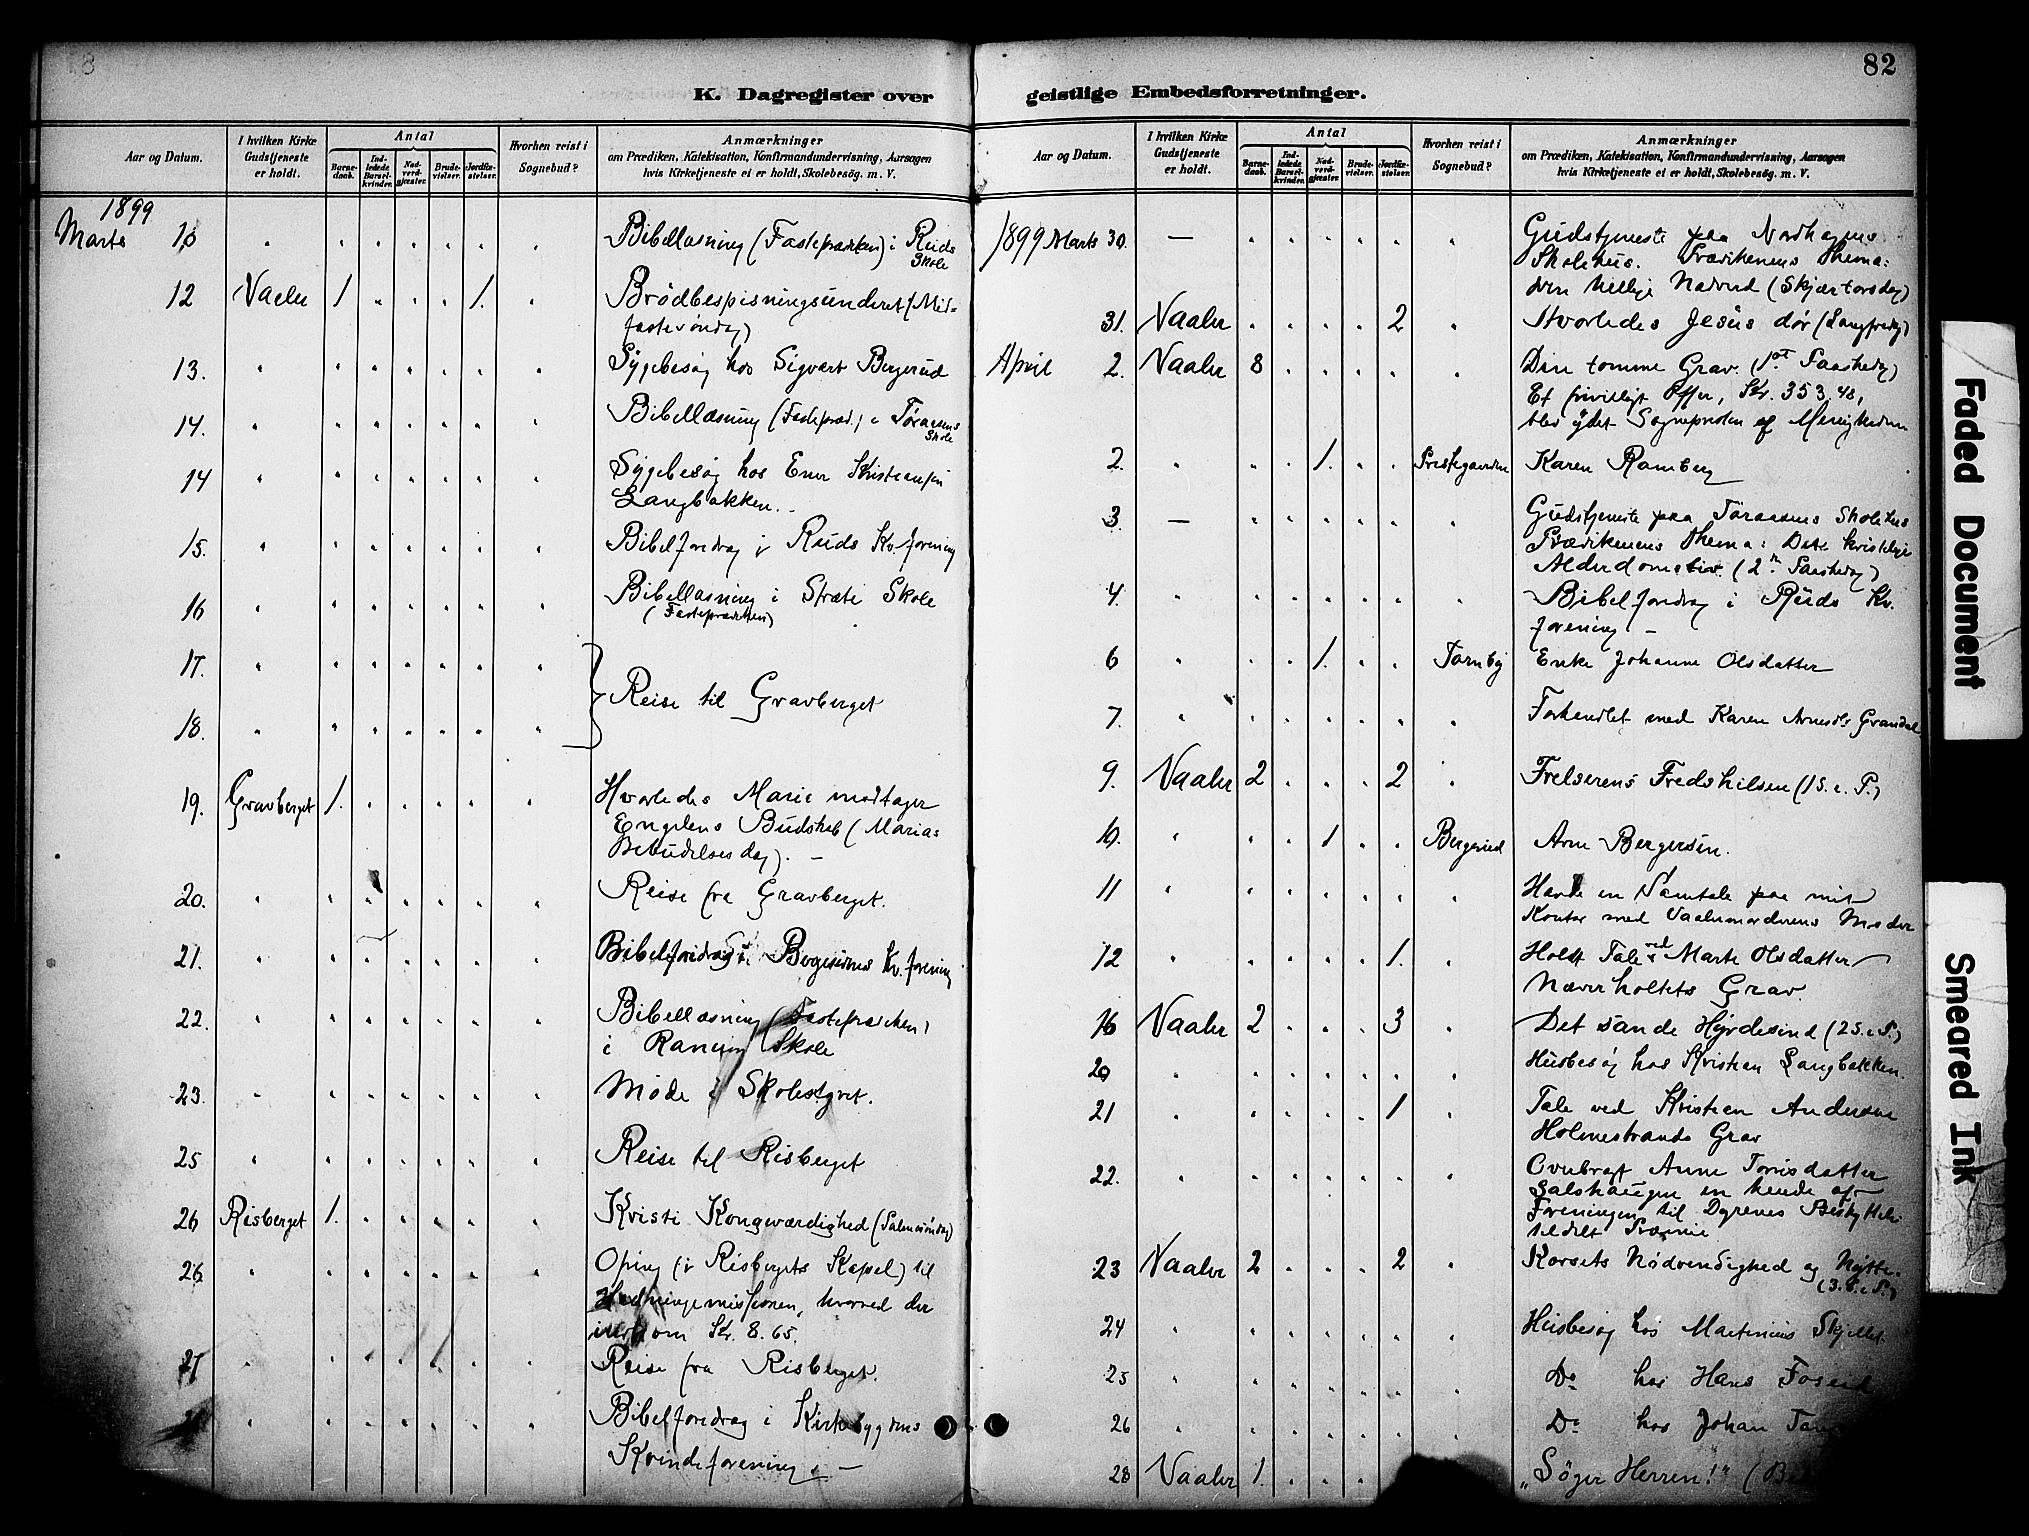 82
K. Dagregister over
geistlige Embedsforretninger.
Aar og Datum.
I hvilken Kirke
Gudstjeneste
er holdt.
Antal
Barne-
daab.
Ind-
ledede
Barsel-
kvinder.
Nad-
verd-
gjæster.
Brude-
vielser.
Jordfæ-
stelser.
Hvorhen reist i
Sognebud?
Anmærkninger
om Prædiken, Katekisation, Konfirmandundervisning, Aarsagen
hvis Kirketjeneste ei er holdt, Skolebesög. m. V.
1899
Marts 10 Bibellæsning (Fasteprædiken) i Ruds
Skole
12 Vaaler 1 1. Brödbespisningsunderet (Mid-
fastesöndag)
13. Sygebesög hos Sigvart Bergerud
14. Bibellæsning (Fastepræd.) i Töraasens
Skole
14 Sygebesög hos Ener Kristiansen
Langbakken.
15. Bibelforedrag i Ruds Kv.forening
16 Bibellæsning i Stræte Skole
(Fasteprædiken)
17.
Reise til Gravberget
18.
19. Gravberget 1. Hvorledes Maria modtager
Engelens Budskab (Marias
Bebudelsesdag). –
20. Reise fra Gravberget.
21. Bibelforedrag i Bergeruds Kv. forening
22. Bibellæsning (Fasteprædiken)
i Skole
23. Møde i Skolestyret.
25 Reise til Risberget
26 Risberget 1. Kristi Kongeværdighed (Palmesöndag)
26 Ofring (i Risbergets Kapel) til
Hedningemissionen, hvorved der
indkom Kr. 8.65.
27 Reise fra Risberget.
Bibelforedrag i Kirkebygdens
Kvindeforening. –
Aar og Datum.
I hvilken Kirke
Gudstjeneste
er holdt.
Antal
Barne-
daab.
Ind-
ledede
Barsel-
kvinder.
Nad-
verd-
gjæster.
Brude-
vielser.
Jordfæ-
stelser.
Hvorhen reist i
Sognebud?
Anmærkninger
om Prædiken, Katekisation, Konfirmandundervisning, Aarsagen
hvis Kirketjeneste ei er holdt, Skolebesög. m. V.
1899 Marts 30. — Gudstjeneste paa Nordhagens
Skolehus. Prædikenens Thema:
den hellige Nadverd (Skjærtorsdag)
31. Vaaler 2 Hvorledes Jesus dør (Langfredag)
April 2. Vaaler 8 Den tomme Grav. (1st Paaskedag)
Et frivilligt Offer, Kr. 353.48,
blev ydet Sognepresten af Menigheden
2. 1. Prestegaarden Karen Ramberg
3. — Gudstjeneste paa Töraasens Skolehus
Prædikenens Thema: Det kristelige
Alderdoms (2n Paaskedag)
4. Bibelforedrag i Ruds Kv.
forening –
6 1. Tornby Enke Johanne Olsdatter
7. Forhandlet med Karen Arnesdtr Grandal
9. Vaaler 2 2 Frelserens Fredshilsen (1 S. e. P.)
10. 1 Bergerud Arne Bergersen.
11 Havde en Samtale paa mit
Kontor med Vaalermorderens Moder
12 1. Holdt Tale ved Marte Olsdatter
Næverholtets Grav.
16 Vaaler 2 3 Det sande Hyrdesind (2 S. e. P.)
20 Husbesög hos Kristian Langbakken.
21 1 Tale ved Kristian Andersen
Holmestrands Grav
22. Overbragt Anne Tonisdatter
Galshaugen en hende af
Foreningen til Dyrenes Beskyttelse
tildelt Præmie
23 Vaaler 2 2 Korsets Nödvendighed og Nytte.
(3. S. e. P.)
24 Husbesög hos Martinius Skjellet
25 Do hos Hans Foseid
26 Do hos Johan
28 Vaaler 1. „Söger Herren!" (
Faded Document
Smeared Ink